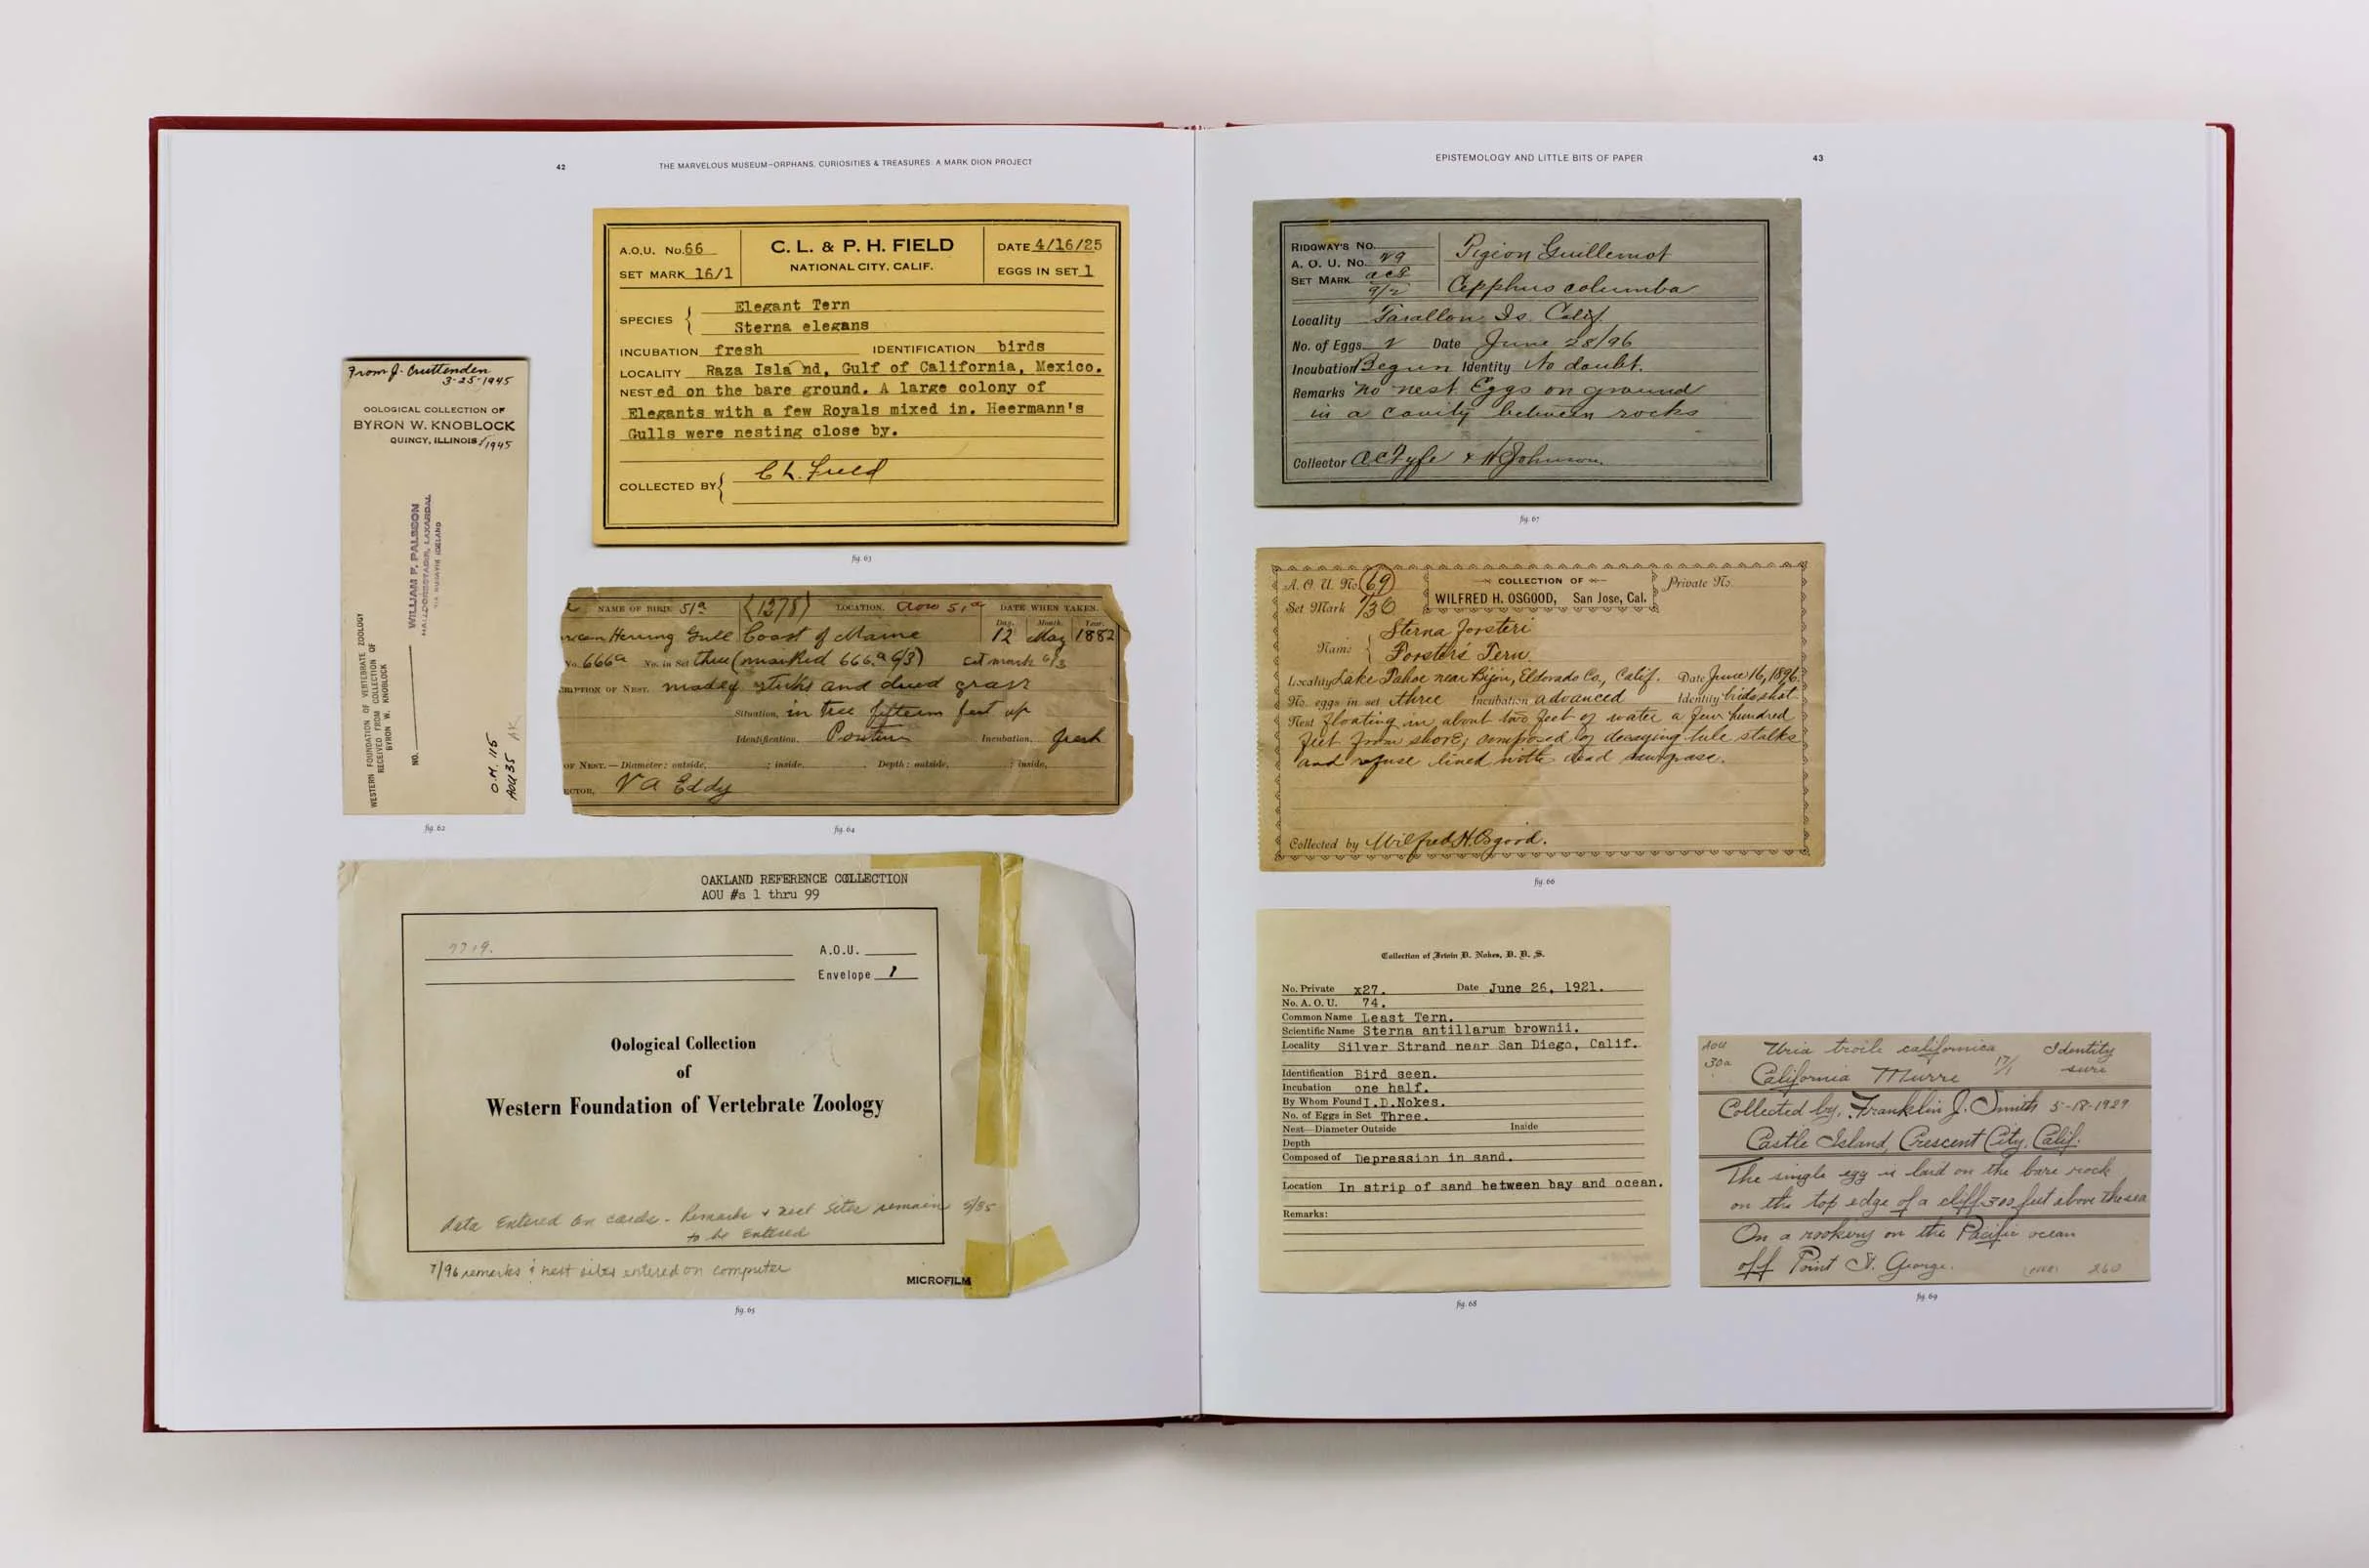 42
THE MARVELOUS MUSEUM—ORPHANS, CURIOSITIES & TREASURES: A MARK DION PROJECT
From J. Cruttenden
3-25-1945
OOLOGICAL COLLECTION OF
BYRON W. KNOBLOCK
QUINCY, ILLINOIS 1945
WILLIAM F. PALSSON
HALLDORSSTADIR, LAXARDAL
VIA HUSAVIK ICELAND
WESTERN FOUNDATION OF VERTEBRATE ZOOLOGY
RECEIVED FROM COLLECTION OF
BYRON W. KNOBLOCK
NO.
O.M. 115
AOU 35
fig. 62
A.O.U. No. 66
SET MARK 16/1
C. L. & P. H. FIELD
NATIONAL CITY, CALIF.
DATE 4/16/25
EGGS IN SET 1
SPECIES { Elegant Tern
Sterna elegans
INCUBATION fresh IDENTIFICATION birds
LOCALITY Raza Isla nd, Gulf of California, Mexico.
NEST ed on the bare ground. A large colony of
Elegants with a few Royals mixed in. Heermann's
Gulls were nesting close by.
COLLECTED BY { C L. Field
fig. 63
NAME OF BIRD. 51a (1278) LOCATION. aou 51a DATE WHEN TAKEN.
Day. Month. Year.
Herring Gull Coast of Maine 12 May 1882
No. 666a No. in Set three (marked 666.a 6/3) Set mark 6/3
OF NEST. made of sticks and dried grass
Situation, in tree fifteen feet up
Identification, Positive Incubation, fresh
OF NEST.—Diameter: outside, ; inside, Depth: outside, ; inside,
V A Eddy
fig. 64
OAKLAND REFERENCE COLLECTION
AOU #s 1 thru 99
A.O.U.
Envelope 1
Oological Collection
of
Western Foundation of Vertebrate Zoology
data Entered on cards - Remarks & nest sites remain 5/85
to be Entered
7/96 remarks & nest sites entered on computer
MICROFILM
fig. 65
EPISTEMOLOGY AND LITTLE BITS OF PAPER
43
RIDGWAY'S No.
A. O. U. No. 29
SET MARK acf
9/2
Pigion Guillemot
Cepphus columba
Locality Farallon Is. Calif.
No. of Eggs 2 Date June 28/96
Incubation Begun Identity No doubt.
Remarks No nest Eggs on ground
in a cavity between rocks
Collector A C Fyfe & H Johnson
fig. 67
A. O. U. No. 69
Set Mark 7/36
COLLECTION OF
WILFRED H. OSGOOD, San Jose, Cal.
Private No.
Name { Sterna forsteri
Forster's Tern.
Locality Lake Tahoe near Bijou, Eldorado Co., Calif. Date June 16, 1896.
No. eggs in set three Incubation advanced Identity birds shot
Nest floating in about two feet of water a few hundred
feet from shore; composed of decaying tule stalks
and refuse lined with dead sawgrass.
Collected by Wilfred H. Osgood.
fig. 66
Collection of Irwin D. Nokes, D. D. S.
No. Private x27. Date June 26, 1921.
No. A. O. U. 74.
Common Name Least Tern.
Scientific Name Sterna antillarum brownii.
Locality Silver Strand near San Diego, Calif.
Identification Bird seen.
Incubation one half.
By Whom Found I.D.Nokes.
No. of Eggs in Set Three.
Nest—Diameter Outside Inside
Depth
Composed of Depression in sand.
Location In strip of sand between bay and ocean.
Remarks:
fig. 68
AOU
30a
Uria troile californica 17/1 Identity
California Murre sure
Collected by, Franklin J. Smith 5-18-1929
Castle Island, Crescent City, Calif.
The single egg is laid on the bare rock
on the top edge of a cliff 300 feet above the sea
On a rookery on the Pacific ocean
off Point St. George. 260
fig. 69